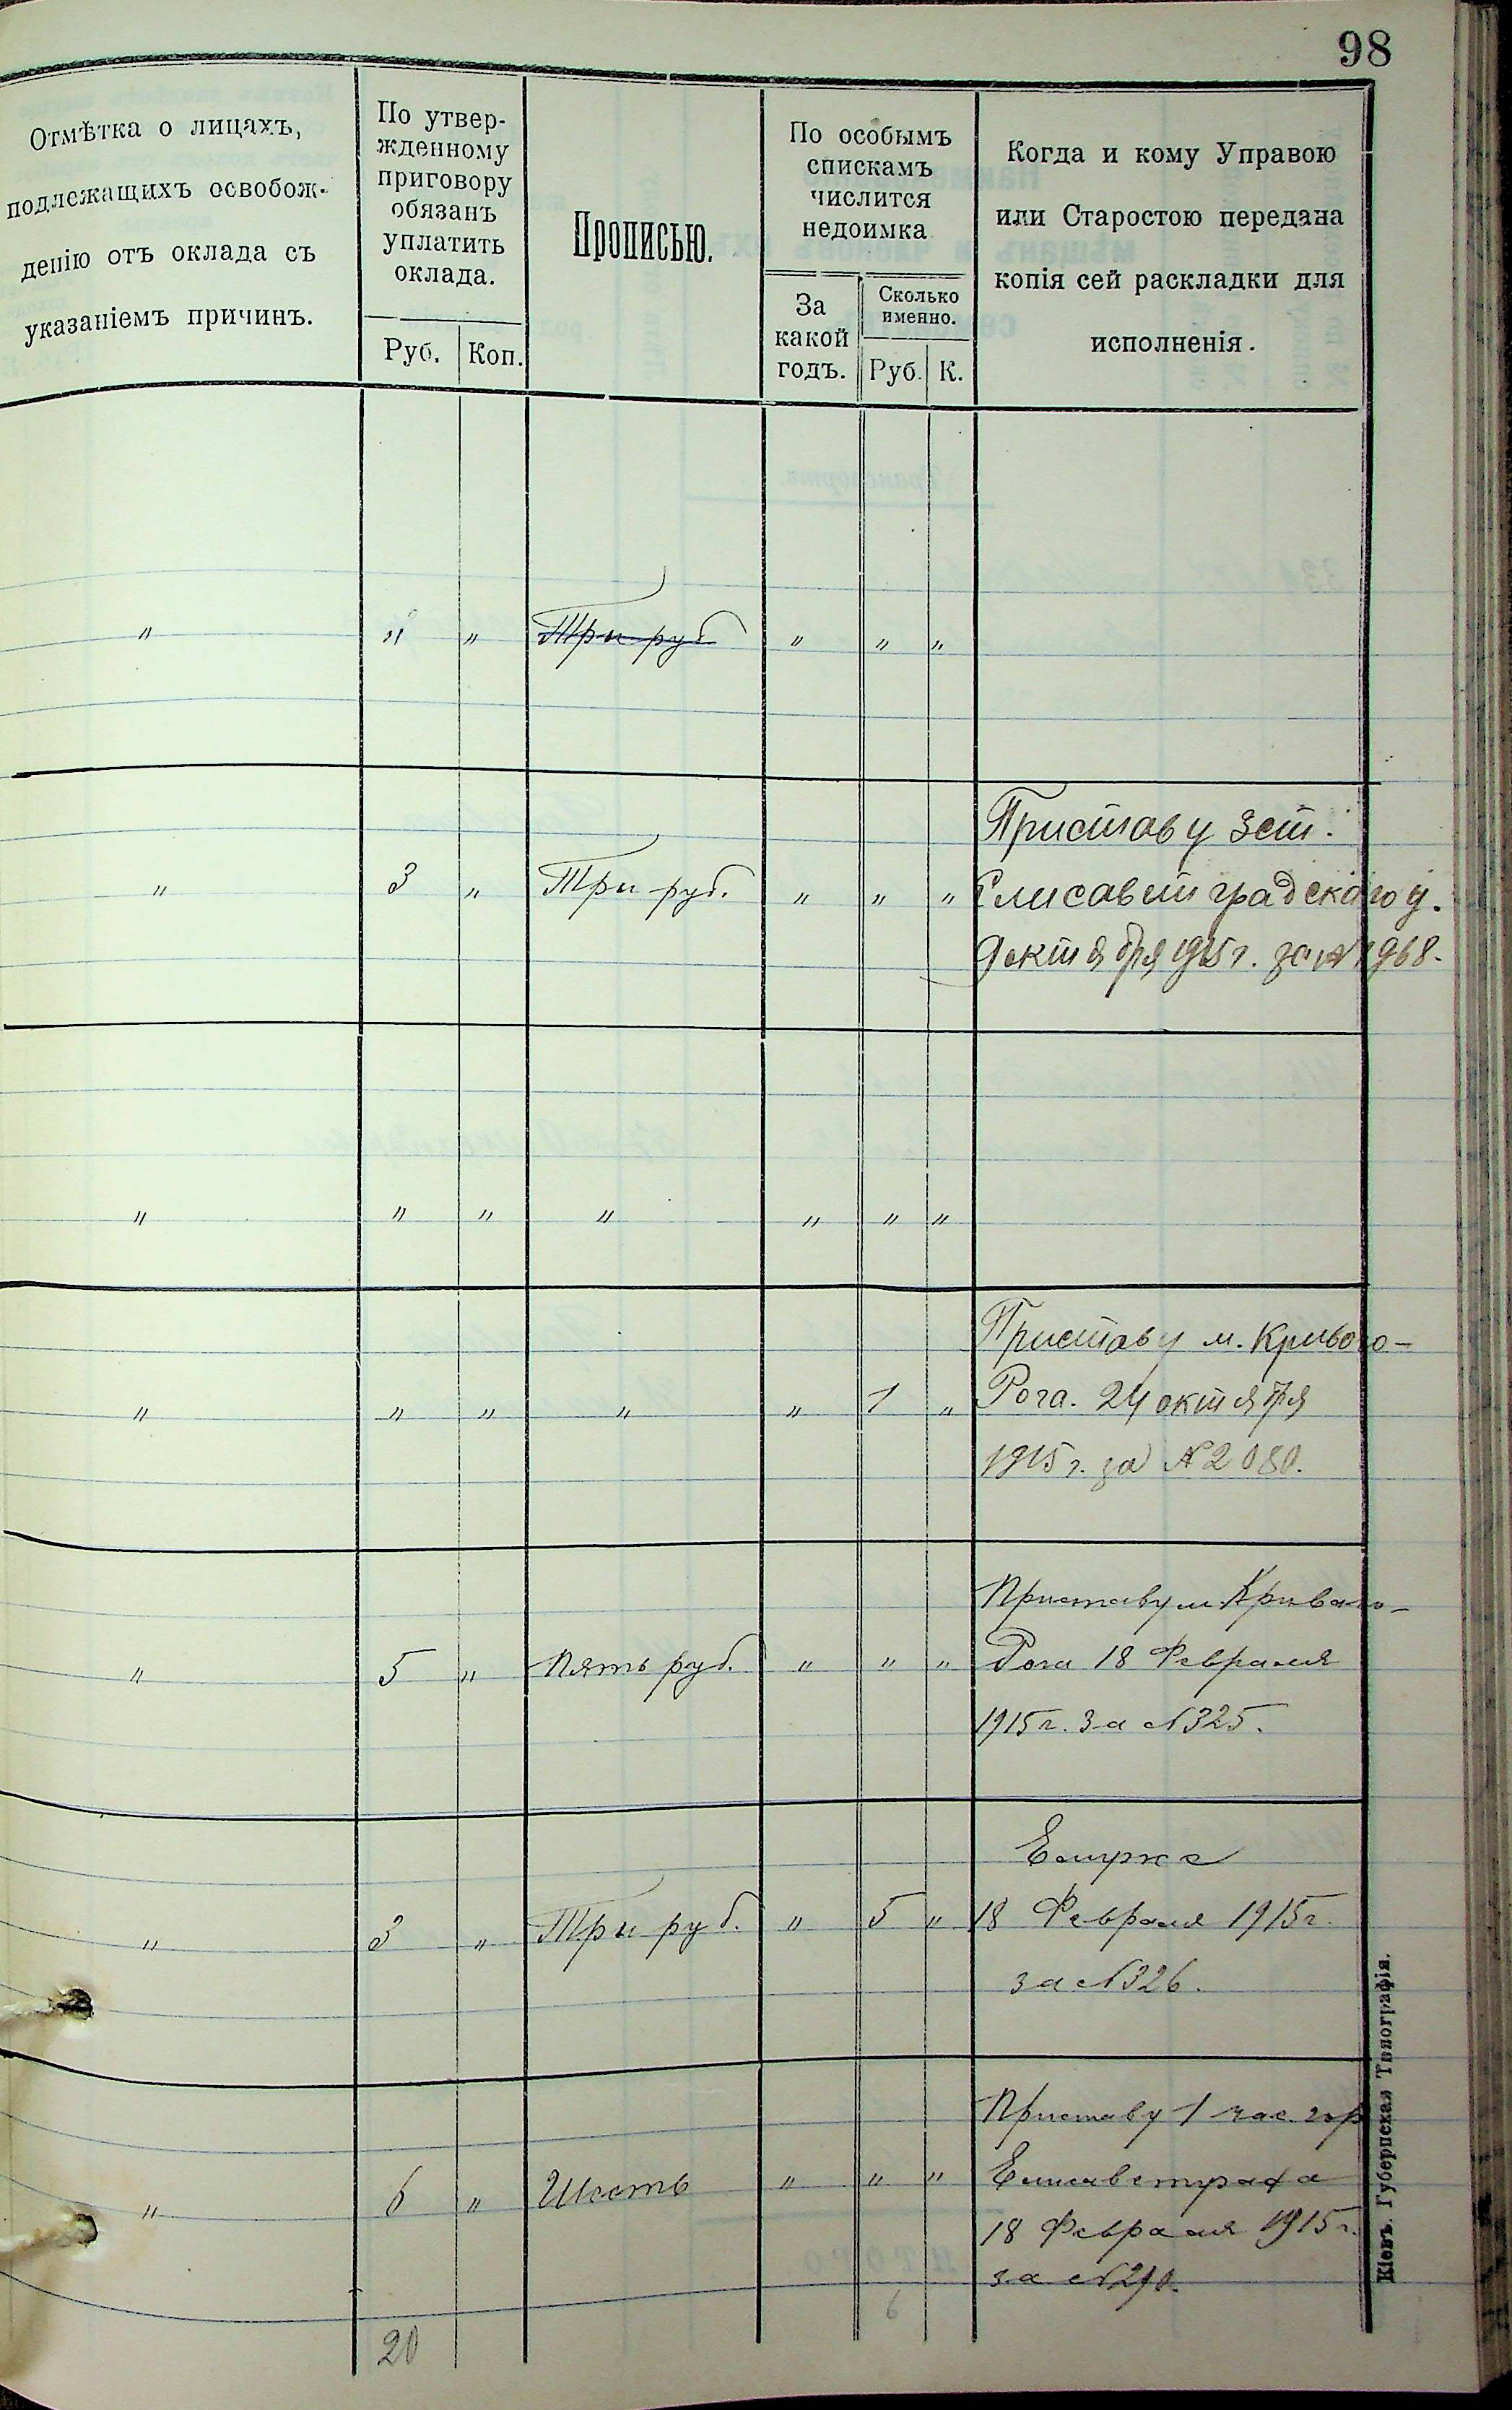 98
Отмѣтка о лицахъ,
подлежащихъ освобож-
денію отъ оклада съ
указаніемъ причинъ.
По утвер-
жденному
приговору
обязанъ
уплатить
оклада.
Руб. Коп.
Прописью.
По особымъ
спискамъ
числится
недоимка
За
какой
годъ.
Сколько
именно.
Руб. К.
Когда и кому Управою
или Старостою передана
копія сей раскладки для
исполненія.
" " " Три руб " " "
Приставу 3 ст.
" 3 " Три руб. " " " Елисаветградскаго у.
9 октября 1915 г. за № 1968.
" " " " " " "
Приставу м. Кривого-
" " " " " 1 " Рога. 24 октября
1915 г. за № 2080.
Приставу м. Кривого-
" 5 " Пять руб. " " " Рога 18 Февраля
1915 г. За № 325.
" 3 " Три руб. " 5 " 18 Февраля 1915 г.
за № 326.
Приставу 1 час. гор
" 6 " Шесть " " " Елисаветграда
18 Февраля 1915 г.
за №
6
20
Кіевъ. Губернская Типографія.